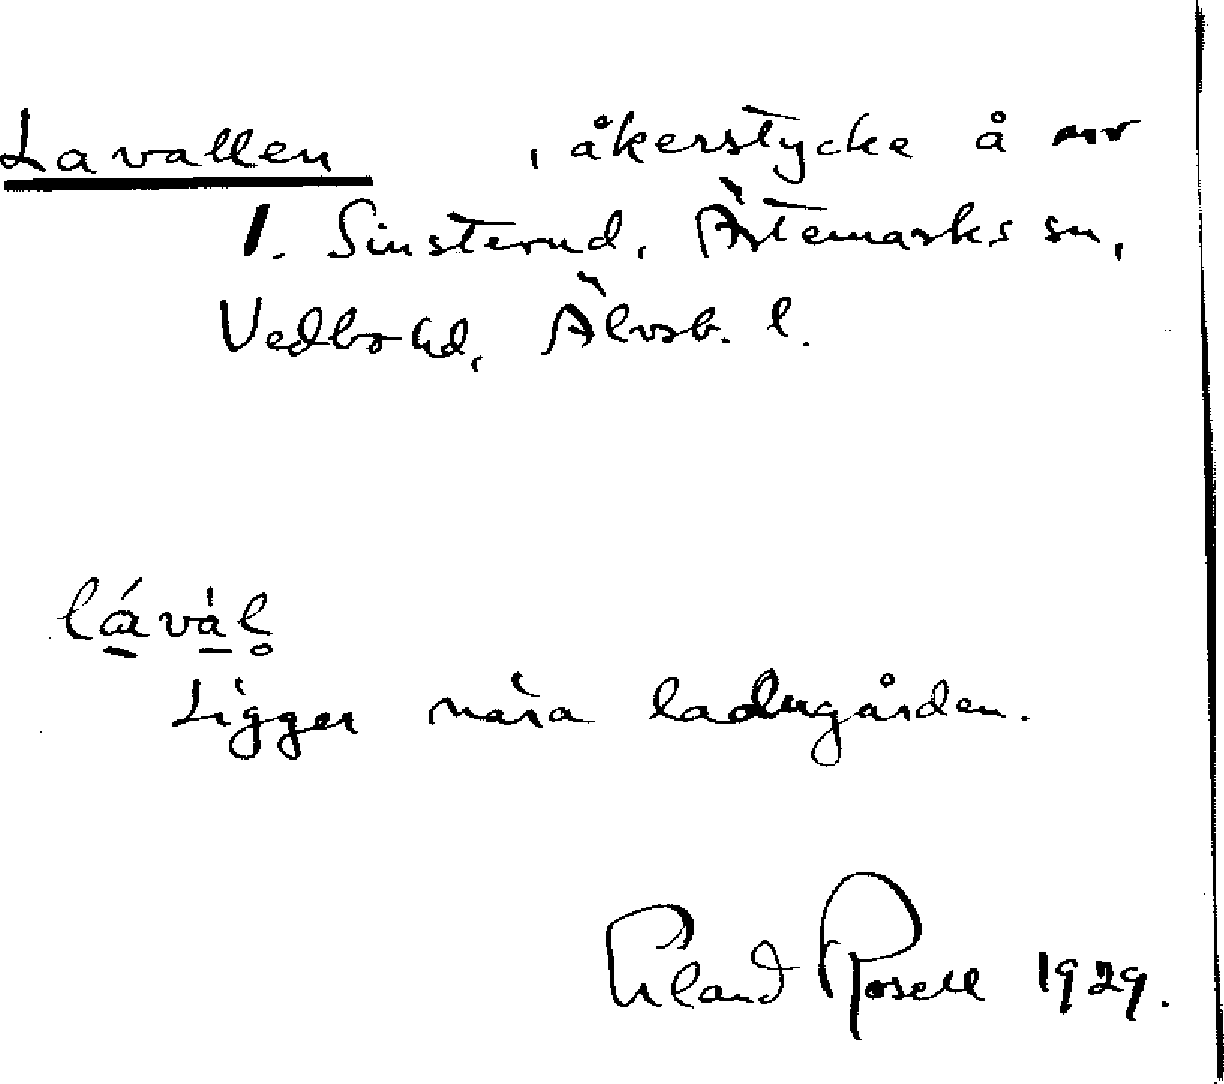 Lavallen , åkerstycke å nr
1. Sinsterud, Ärtemarks sn,
Vedbo hd, Älvsb. l.
lá̱và̱l̥
Ligger nära ladugården.
Erland Rosell 1929.